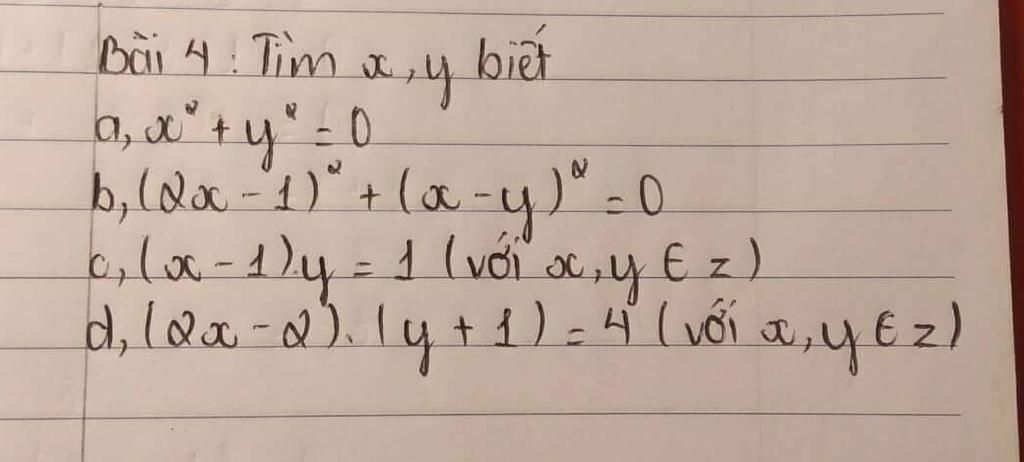 Bài 4 : Tìm x, y biết
a, x² + y² = 0
b, (2x - 1)² + (x - y)² = 0
c, (x - 1).y = 1 (với x, y ∈ z)
d, (2x - 2). (y + 1) = 4 (với x, y ∈ z)